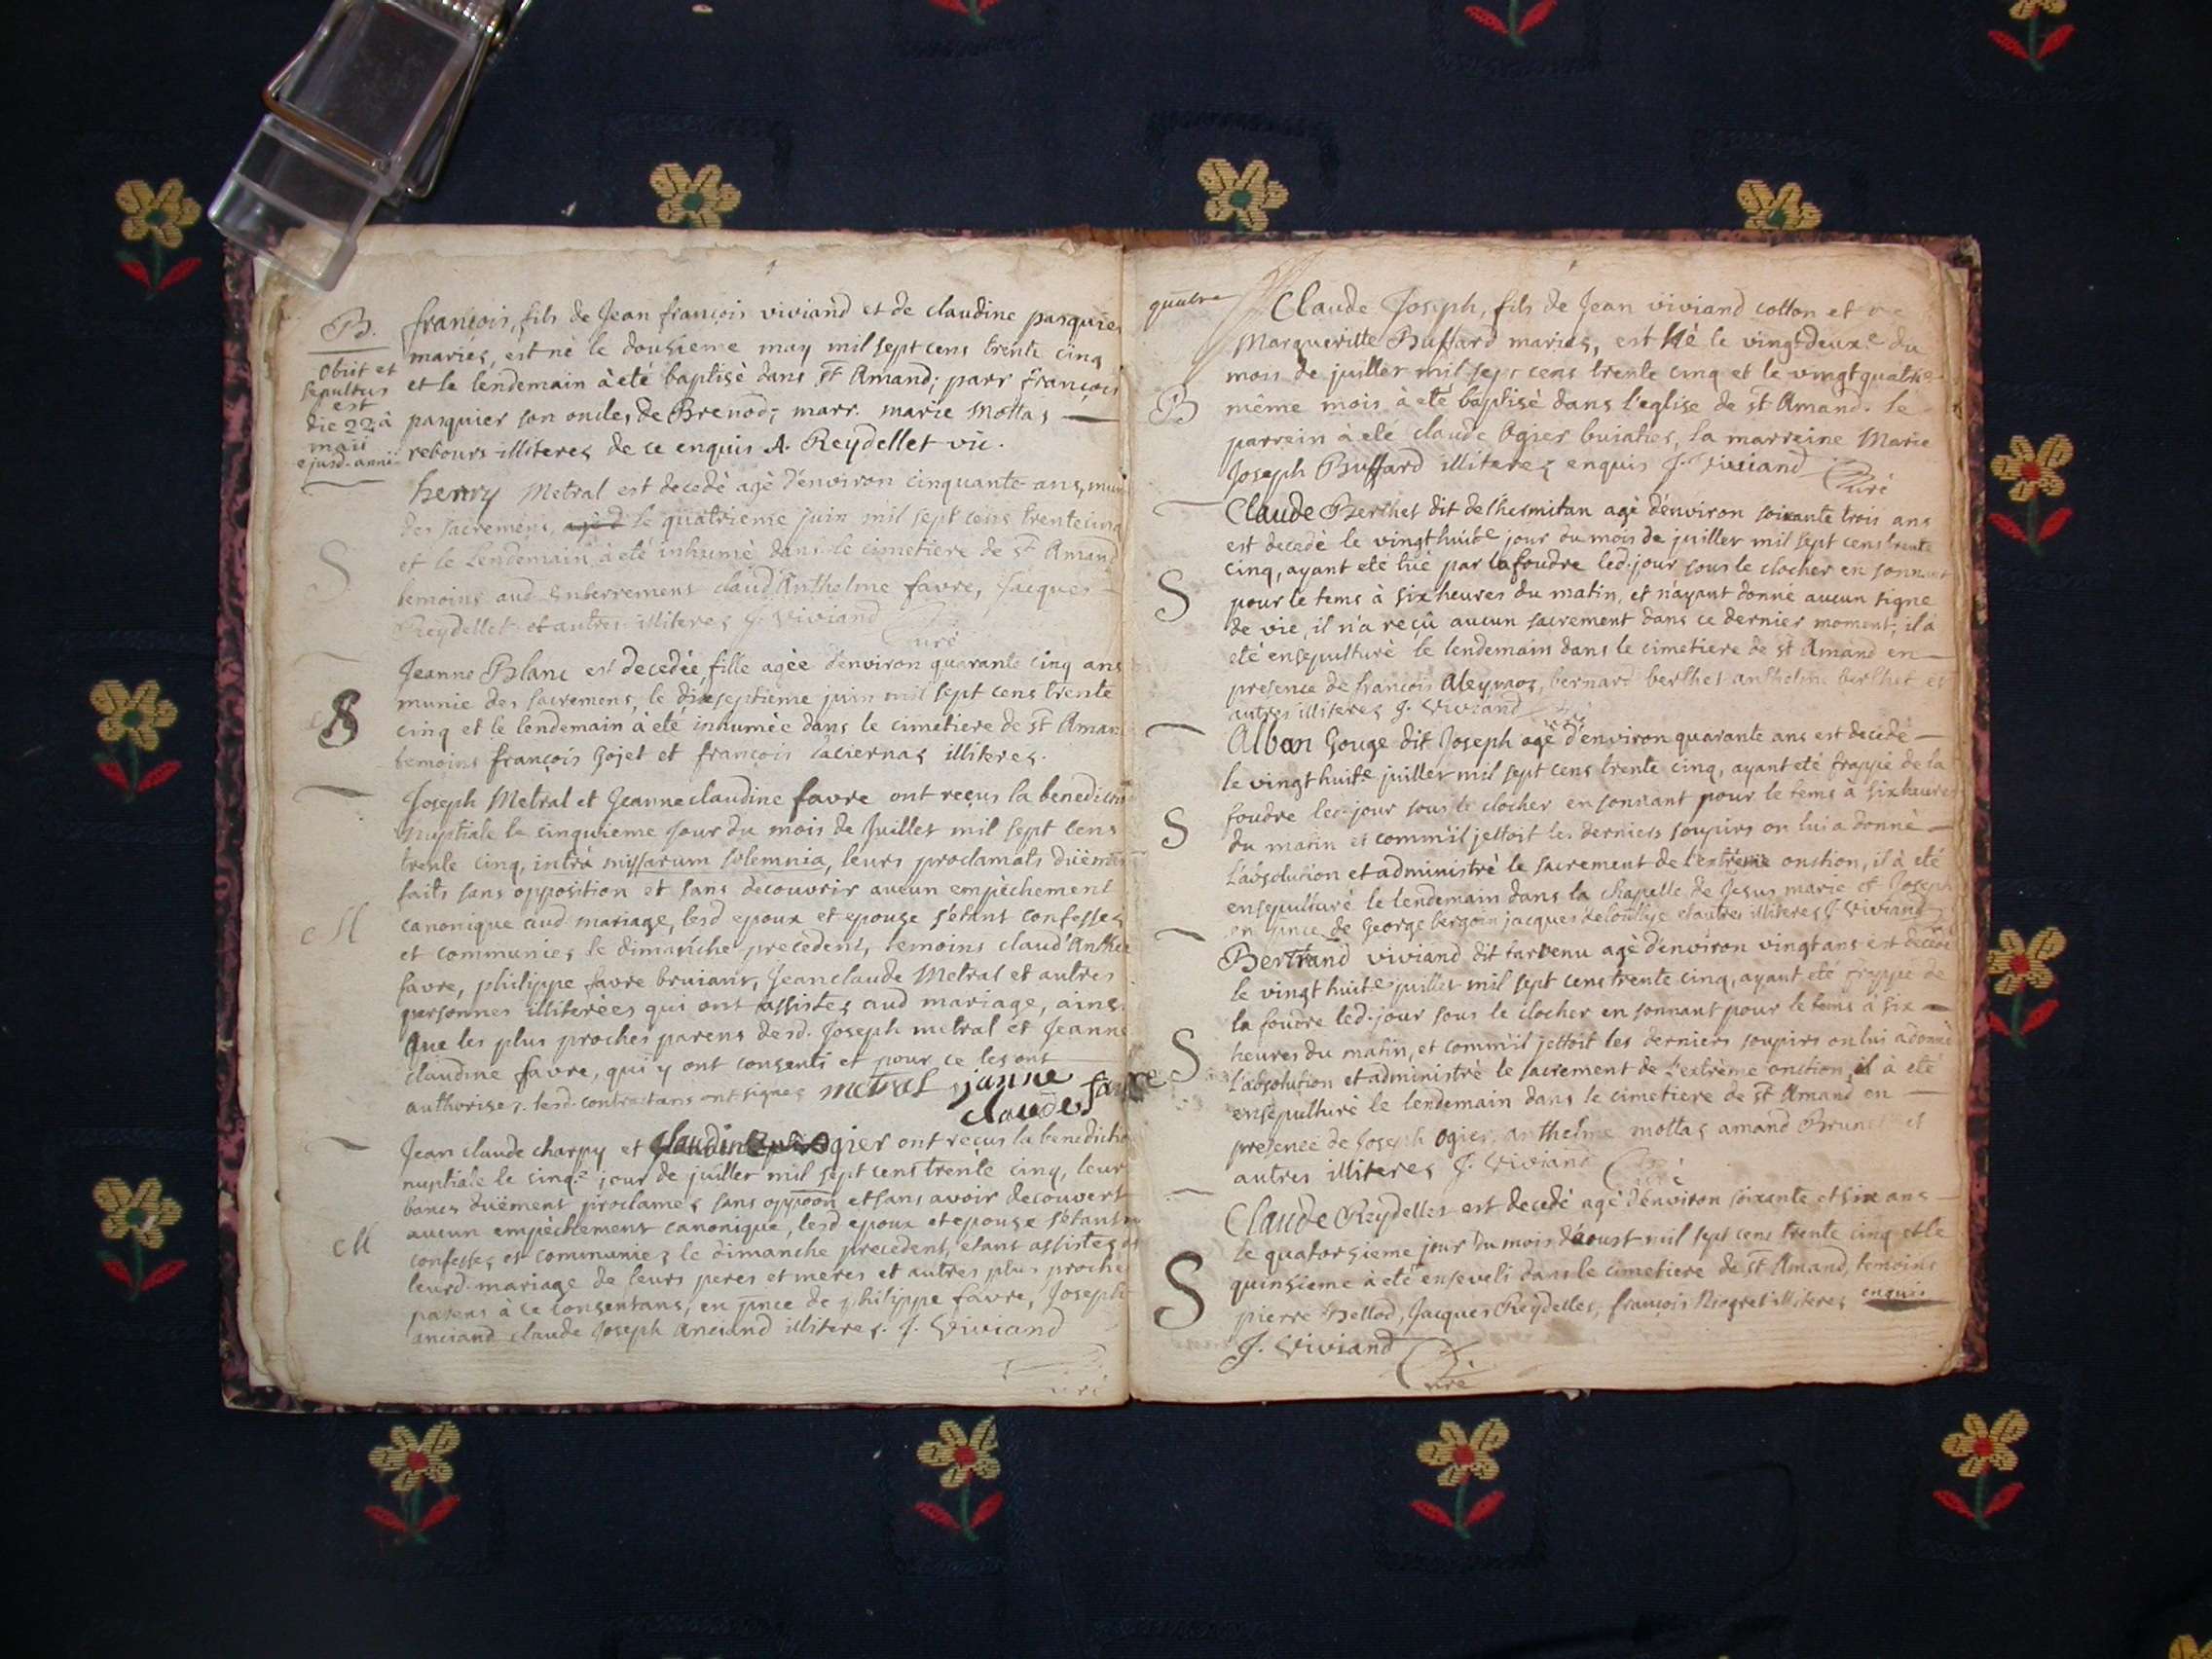 B.
françois, fils de Jean françois viviand et de claudine pasquier
mariés, est né le dousieme may mil sept cens trente cinq
et le lendemain à eté baptisè dans st Amand; parr françois
pasquier son oncle, de Brenod; marr. marie Mottas
rebours illiteres de ce enquis A. Reydellet vic.
Obiit et
sepultus
est
die 22 à
maii
ejusd. anni
henry Metral est decedè agè d'environ cinquante ans, muni
des sacremens, le quatrieme juin mil sept cens trente cinq
S
et le Lendemain à eté inhumè dans le cimetiere de st Amand
temoins aud enterrement claud'Anthelme favre, Jacques
Reydellet et autres illiteres J. Viviand Curé
Jeanne Blanc est decedée, fille agèe d'environ quarante cinq ans
munie des sacremens, le dixseptieme juin mil sept cens trente
S
cinq et le lendemain à eté inhumèe dans le cimetiere de st Aman
temoins françois Gojet et françois illiteres.
Joseph Metral et Jeanne claudine favre ont reçus la benediction
Nuptiale le cinquieme jour du mois de Juillet mil sept cens
trente cinq, intrà missarum solemnia, leurs proclamats duëment
faits sans opposition et sans decouvrir aucun empèchement
M
canonique aud. mariage, lesd epoux et epouse s'étans confessés
et communiés le dimanche precedent, temoins claud'Anthe
favre, philippe favre bruiant, Jean claude Metral et autres
personnes illiterèes qui ont assistés aud mariage, ains
Que les plus proches parens desd. Joseph metral et Jeanne
claudine favre, qui y ont consenti et pour ce les ont
authorises. lesd. contractans ont signes metral janne
claude favre
Jean claude charpy et claudine ogier ont reçus la benediction
nuptiale le cinq.e jour de juillet mil sept cens trente cinq, leur
bancs duëment proclamés sans oppoon et sans avoir decouvert
aucun empèchement canonique, lesd epoux et epouse s'étans
M
confesses et communiez le dimanche precedent, etans assistes
leurd. mariage de leurs peres et meres et autres plus proche
parens à ce consentans, en pnce de philippe favre, Joseph
anciand claude Joseph Anciand illiteres. J. Viviand
Curé
quatre
Claude Joseph, fils de Jean viviand colton et de
Margueritte Buffard mariés, est Né le vingtdeux.e du
mois de juillet mil sept cens trente cinq et le vingtquatre
B
même mois à eté baptisè dans l'eglise de st Amand. le
parrein à eté claude Ogier, la marreine Marie
Joseph Buffard illiteres enquis J. Viviand Curé
Claude Berthet dit de l'hermitan agè d'environ soixante trois ans
est decedè le vingthuit.e jour du mois de juillet mil sept cens trente
cinq, ayant eté tué par la foudre led. jour sous le clocher en sonnant
S
pour le tems à six heures du matin, et n'ayant donné aucun signe
de vie, il n'a reçû aucun sacrement dans ce dernier moment; il à
eté ensepulturè le lendemain dans le cimetiere de st Amand en
presence de françois, bernard berthet anthelme berthet et
autres illiteres J. Viviand Curé
Alban Gouge dit Joseph agè d'environ quarante ans est decedè
le vingt huit.e juillet mil sept cens trente cinq, ayant eté frappé de la
foudre led. jour sous le clocher en sonnant pour le tems à six heures
S
du matin et comm'il jettoit les derniers soupirs on lui a donné
l'absolution et administrè le sacrement de l'extrème onction, il à eté
ensepulturè le lendemain dans la chapelle de Jesus marie et Joseph
en pnce de George bergoin jacques et autres illiteres J. Viviand
Bertrand viviand dit agè d'environ vingt ans est decedé
le vingt huit.e juillet mil sept cens trente cinq, ayant eté frappé de
la foudre led. jour sous le clocher en sonnant pour le tems à six
S
heures du matin, et comm'il jettoit les derniers soupirs on lui a donné
l'absolution et administrè le sacrement de l'extrème onction, il à eté
ensepulturè le lendemain dans le cimetiere de st Amand en
presence de Joseph Ogier, anthelme mottas amand Brunet et
autres illiteres J. Viviand Curé
Claude Reydellet est decedé agé d'environ soixante et six ans
le quatorsieme jour du mois d'Aoust mil sept cens trente cinq et le
S
quinsieme à eté enseveli dans le cimetiere de st Amand, temoins
pierre Bellod, Jacques Reydellet, françois Nogret illiteres enquis
J. Viviand
Curé